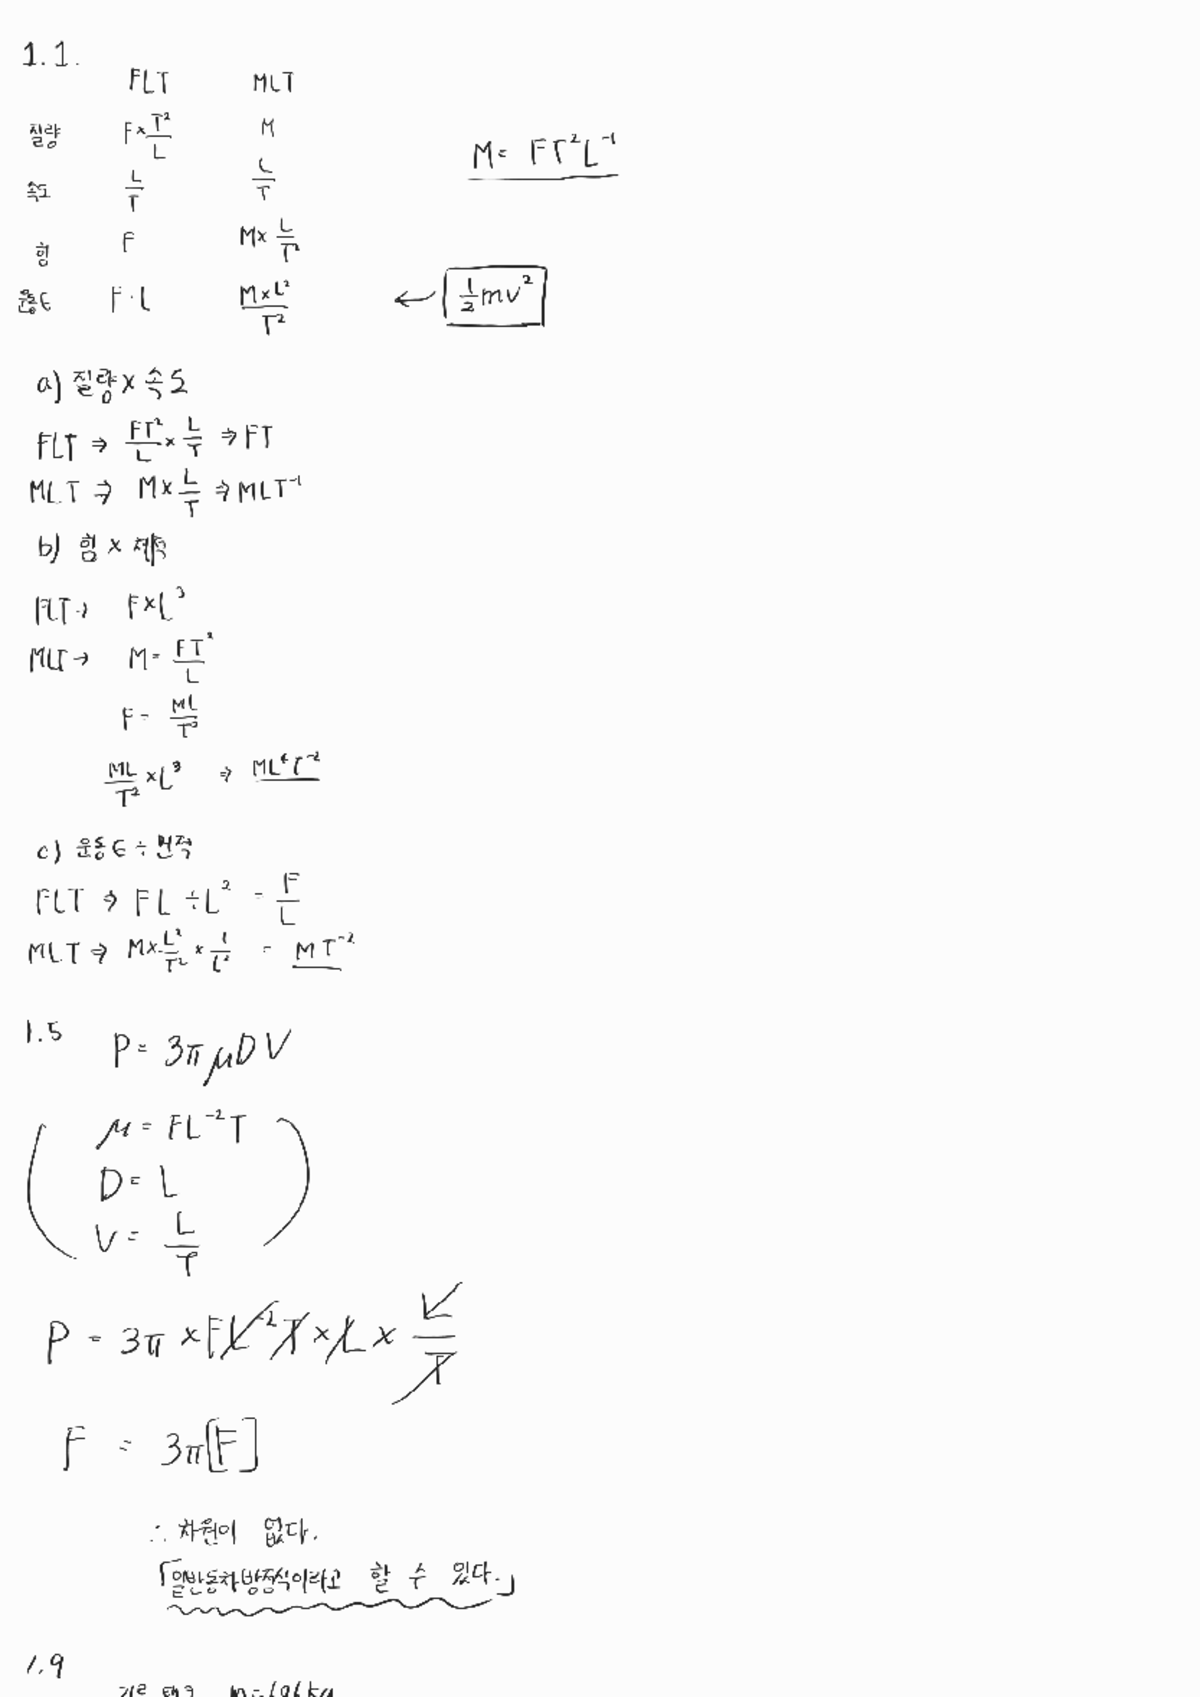 1.1.
FLT MLT
질량 F×T²/L M
M= FT²L⁻¹
속도 L/T L/T
힘 F M× L/T²
운동E F·L M×L²/T² ← ½mv²
a) 질량×속도
FLT ⇒ FT²/L × L/T ⇒ FT
MLT ⇒ M×L/T ⇒ MLT⁻¹
b) 힘 × 체적
FLT→ F×L³
MLT→ M= FT²/L
F= ML/T²
ML/T² ×L³ ⇒ ML⁴T⁻²
c) 운동E ÷ 면적
FLT ⇒ FL ÷L² = F/L
MLT ⇒ M×L²/T² × 1/L² = MT⁻²
1.5 P= 3πμDV
μ= FL⁻²T
D= L
V= L/T
P = 3π ×FL⁻²T×L× L/T
F = 3π[F]
∴ 차원이 없다.
「일반동차방정식이라고 할 수 있다.」
1.9